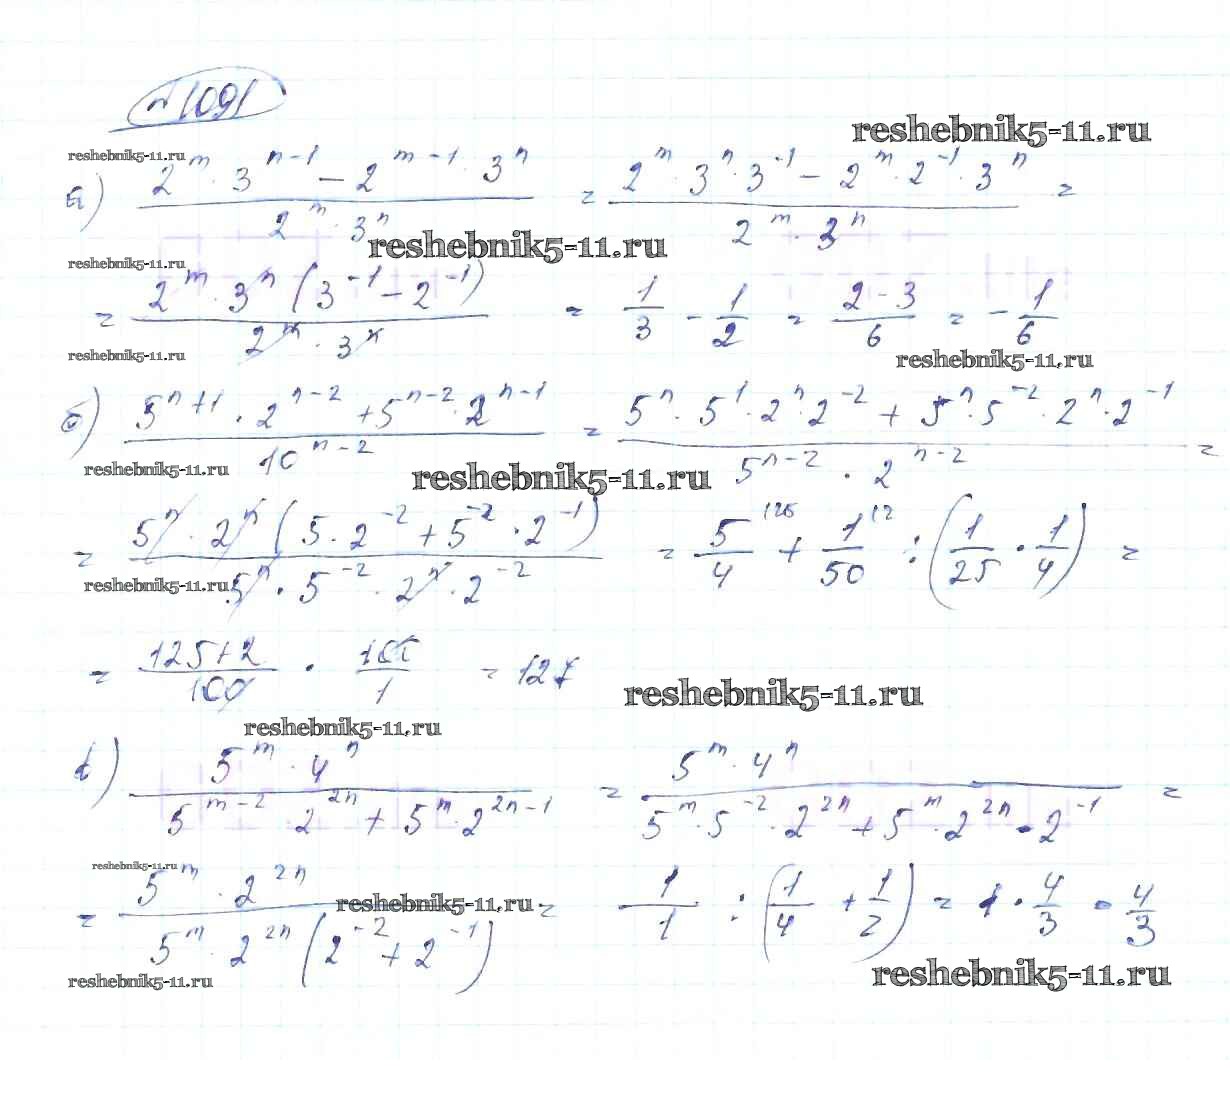 №1091
reshebnik5-11.ru
reshebnik5-11.ru
а) (2^m · 3^(n-1) - 2^(m-1) · 3^n) / (2^m · 3^n) = (2^m · 3^n · 3^-1 - 2^m · 2^-1 · 3^n) / (2^m · 3^n) =
reshebnik5-11.ru
reshebnik5-11.ru
= (2^m · 3^n (3^-1 - 2^-1)) / (2^m · 3^n) = 1/3 - 1/2 = (2-3)/6 = -1/6
reshebnik5-11.ru
reshebnik5-11.ru
б) (5^(n+1) · 2^(n-2) + 5^(n-2) · 2^(n-1)) / 10^(n-2) = (5^n · 5^1 · 2^n · 2^-2 + 5^n · 5^-2 · 2^n · 2^-1) / (5^(n-2) · 2^(n-2)) =
reshebnik5-11.ru
reshebnik5-11.ru
= (5^n · 2^n (5 · 2^-2 + 5^-2 · 2^-1)) / (5^n · 5^-2 · 2^n · 2^-2) = 5/4 + 1/50 : (1/25 · 1/4) =
reshebnik5-11.ru
= (125+2)/100 · 100/1 = 127
reshebnik5-11.ru
reshebnik5-11.ru
в) (5^m · 4^n) / (5^(m-2) · 2^(2n) + 5^m · 2^(2n-1)) = (5^m · 4^n) / (5^m · 5^-2 · 2^(2n) + 5^m · 2^(2n) · 2^-1) =
reshebnik5-11.ru
= (5^m · 2^(2n)) / (5^m · 2^(2n) (2^-2 + 2^-1)) = 1/1 : (1/4 + 1/2) = 1 · 4/3 = 4/3
reshebnik5-11.ru
reshebnik5-11.ru
reshebnik5-11.ru